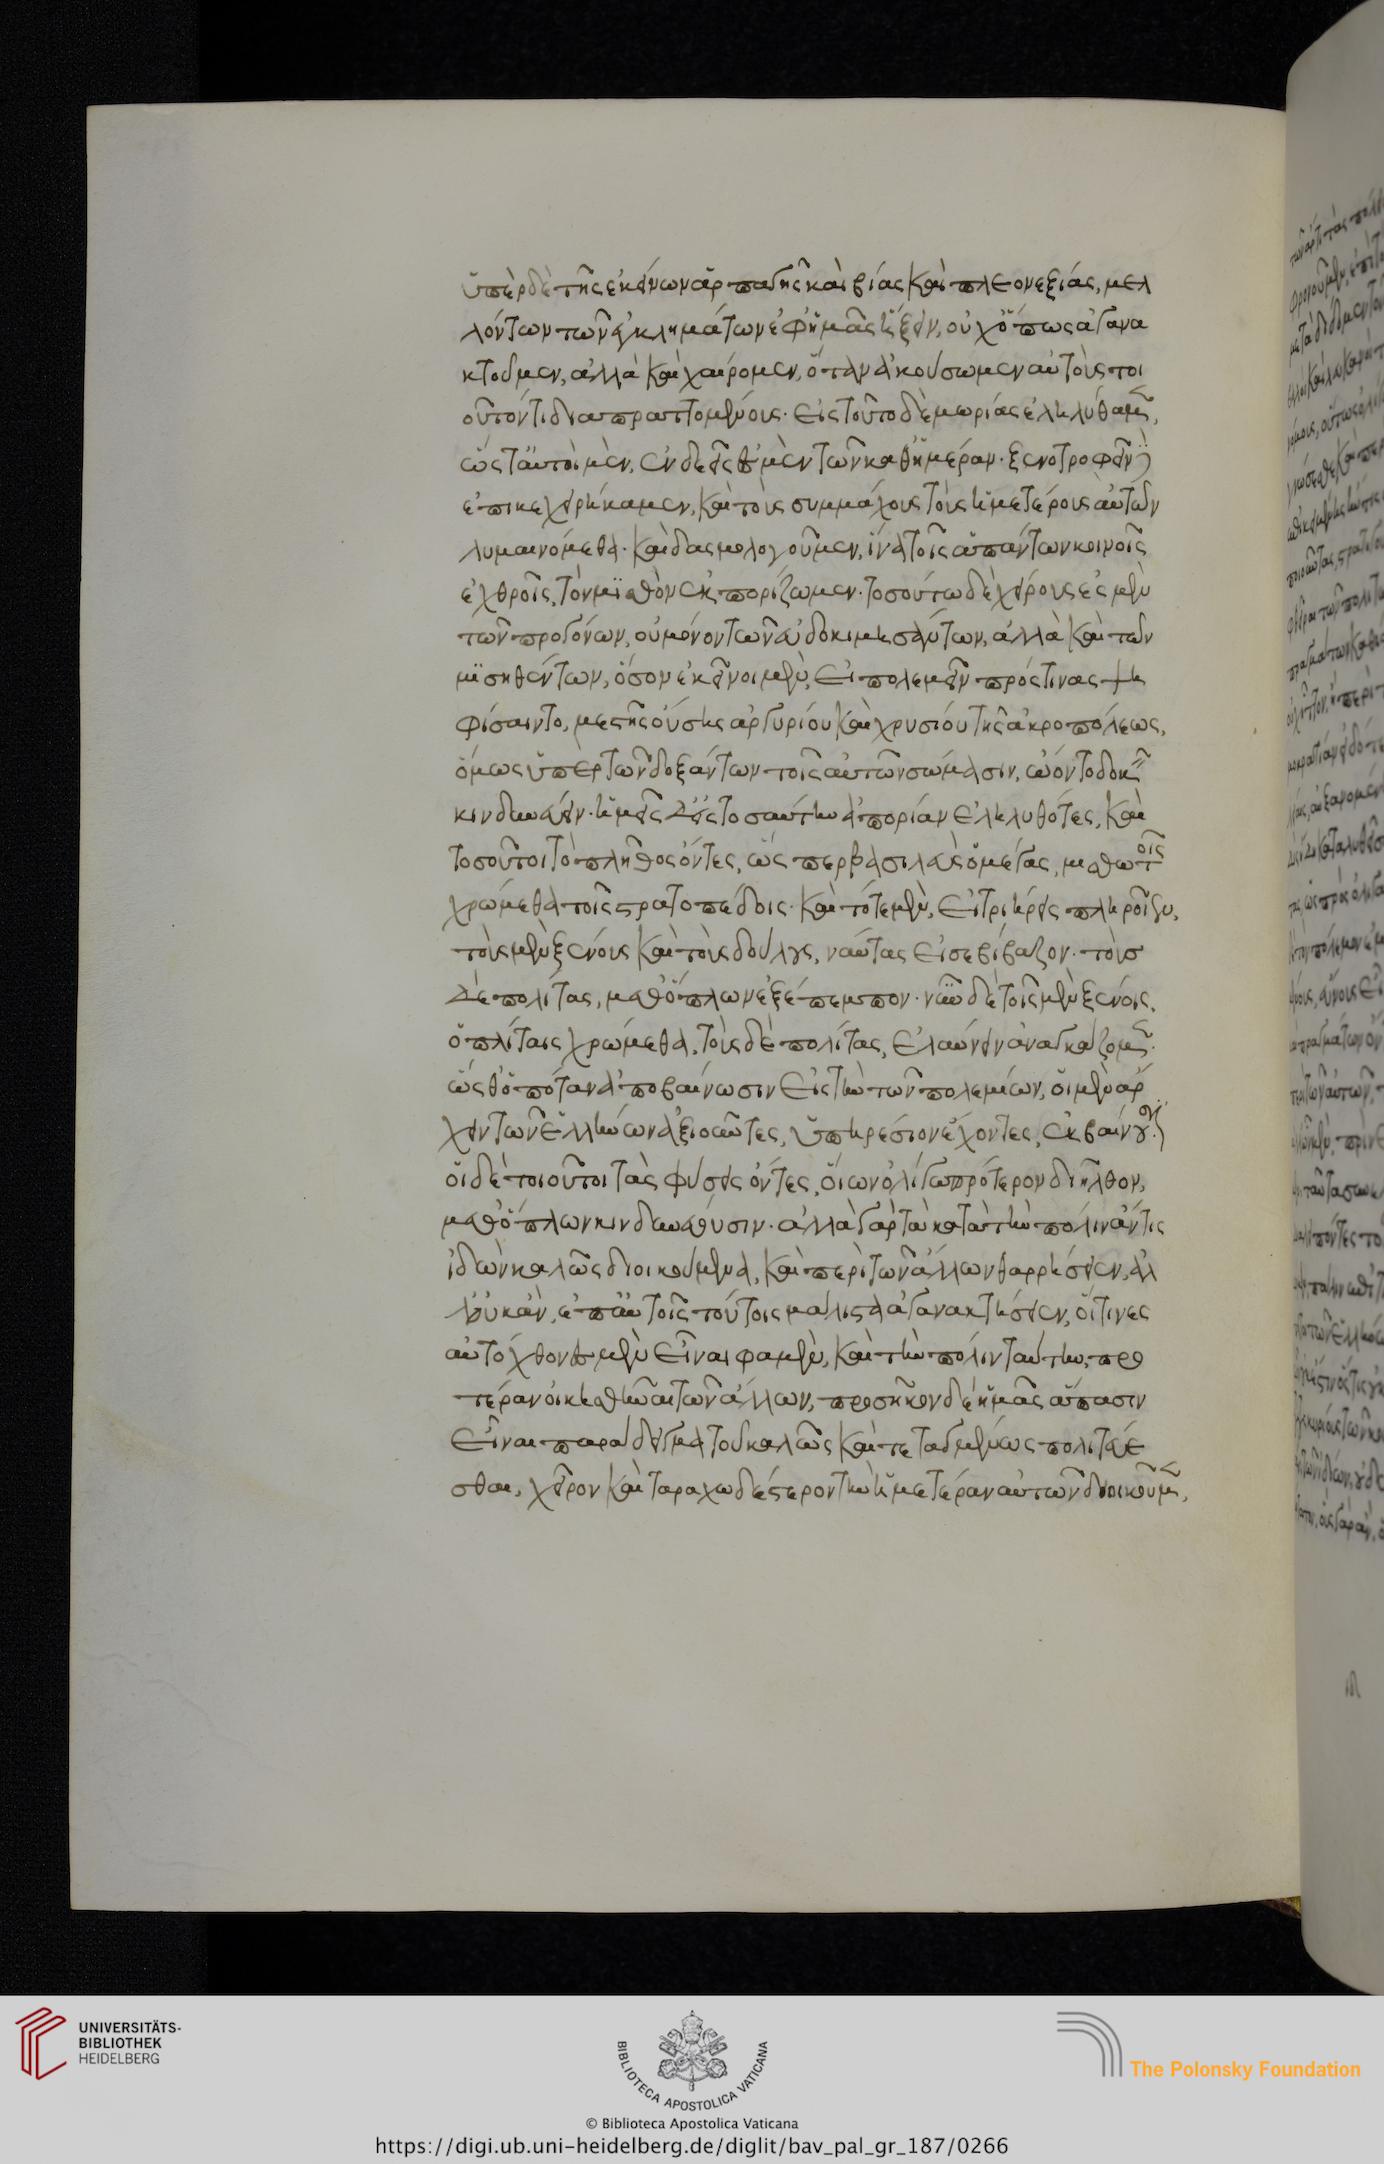 ὑπὲρ δὲ τῆς ἐκείνων ἁρπαγῆς καὶ βίας καὶ πλεονεξίας, μελ
λόντων τῶν ἐγκλημάτων ἐφ' ἡμᾶς ἥξειν, οὐχ ὅπως ἀγανα
κτοῦμεν, ἀλλὰ καὶ χαίρομεν, ὅταν ἀκούσωμεν αὐτοὺς τοι
οῦτόν τι διαπραττομένους. εἰς τοῦτο δὲ μωρίας ἐληλύθαμεν,
ὥστ' αὐτοὶ μὲν, ἐνδεεῖς ἐσμὲν τῶν καθ' ἡμέραν. ξενοτροφεῖν
ἐπικεχειρήκαμεν, καὶ τοὺς συμμάχους τοὺς ἡμετέρους αὐτῶν
λυμαινόμεθα. καὶ δασμολογοῦμεν, ἵνα τοῖς ἁπάντων κοινοῖς
ἐχθροῖς, τὸν μισθὸν ἐκπορίζωμεν. τοσούτω δὲ χείρους ἐσμὲν
τῶν προγόνων, οὐ μόνον τῶν εὐδοκιμησάντων, ἀλλὰ καὶ τῶν
μισηθέντων, ὅσον ἐκεῖνοι μὲν, εἰ πολεμεῖν πρός τινας ψη
φίσαιντο, μεστῆς οὔσης ἀργυρίου καὶ χρυσίου τῆς ἀκροπόλεως,
ὅμως ὑπὲρ τῶν δοξάντων τοῖς αὑτῶν σώμασιν, ὤοντο δεῖν
κινδυνεύειν. ἡμεῖς δ' εἰς τοσαύτην ἀπορίαν ἐληλυθότες, καὶ
τοσοῦτοι τὸ πλῆθος ὄντες, ὥσπερ βασιλεὺς ὁ μέγας, μισθωτοῖς
χρώμεθα τοῖς στρατοπέδοις. καὶ τότε μὲν, εἰ τριήρεις πληροῖεν,
τοὺς μὲν ξένους καὶ τοὺς δούλους, ναύτας εἰσεβίβαζον. τοὺς
δὲ πολίτας, μεθ' ὅπλων ἐξέπεμπον. νῦν δὲ τοῖς μὲν ξένοις,
ὁπλίταις χρώμεθα, τοὺς δὲ πολίτας, ἐλαύνειν ἀναγκάζομεν.
ὥσθ' ὁπόταν ἀποβαίνωσιν εἰς τὴν τῶν πολεμίων, οἱ μὲν ἄρ
χειν τῶν ἑλλήνων ἀξιοῦντες, ὑπηρέσιον ἔχοντες, ἐκβαίνουσιν.
οἱ δὲ τοιοῦτοι τὰς φύσεις ὄντες, οἵων ὀλίγω πρότερον διῆλθον,
μεθ' ὅπλων κινδυνεύουσιν. ἀλλὰ γὰρ τὰ κατὰ τὴν πόλιν ἄν τις
ἰδὼν καλῶς διοικούμενα, καὶ περὶ τῶν ἄλλων θαρρήσειεν, ἀλ
λ' οὐκ ἂν, ἐπ' αὐτοῖς τούτοις μάλιστα ἀγανακτήσειεν, οἵτινες
αὐτόχθονες μὲν εἶναι φαμὲν, καὶ τὴν πόλιν ταύτην, προ
τέραν οἰκισθῆναι τῶν ἄλλων, προσῆκον δὲ ἡμᾶς ἅπασιν
εἶναι παράδειγμα τοῦ καλῶς καὶ τεταγμένως πολιτεύε
σθαι, χεῖρον καὶ ταραχωδέστερον τὴν ἡμετέραν αὐτῶν διοικοῦμεν,
UNIVERSITÄTS-
BIBLIOTHEK
HEIDELBERG
BIBLIOTECA APOSTOLICA VATICANA
The Polonsky Foundation
© Biblioteca Apostolica Vaticana
https://digi.ub.uni-heidelberg.de/diglit/bav_pal_gr_187/0266